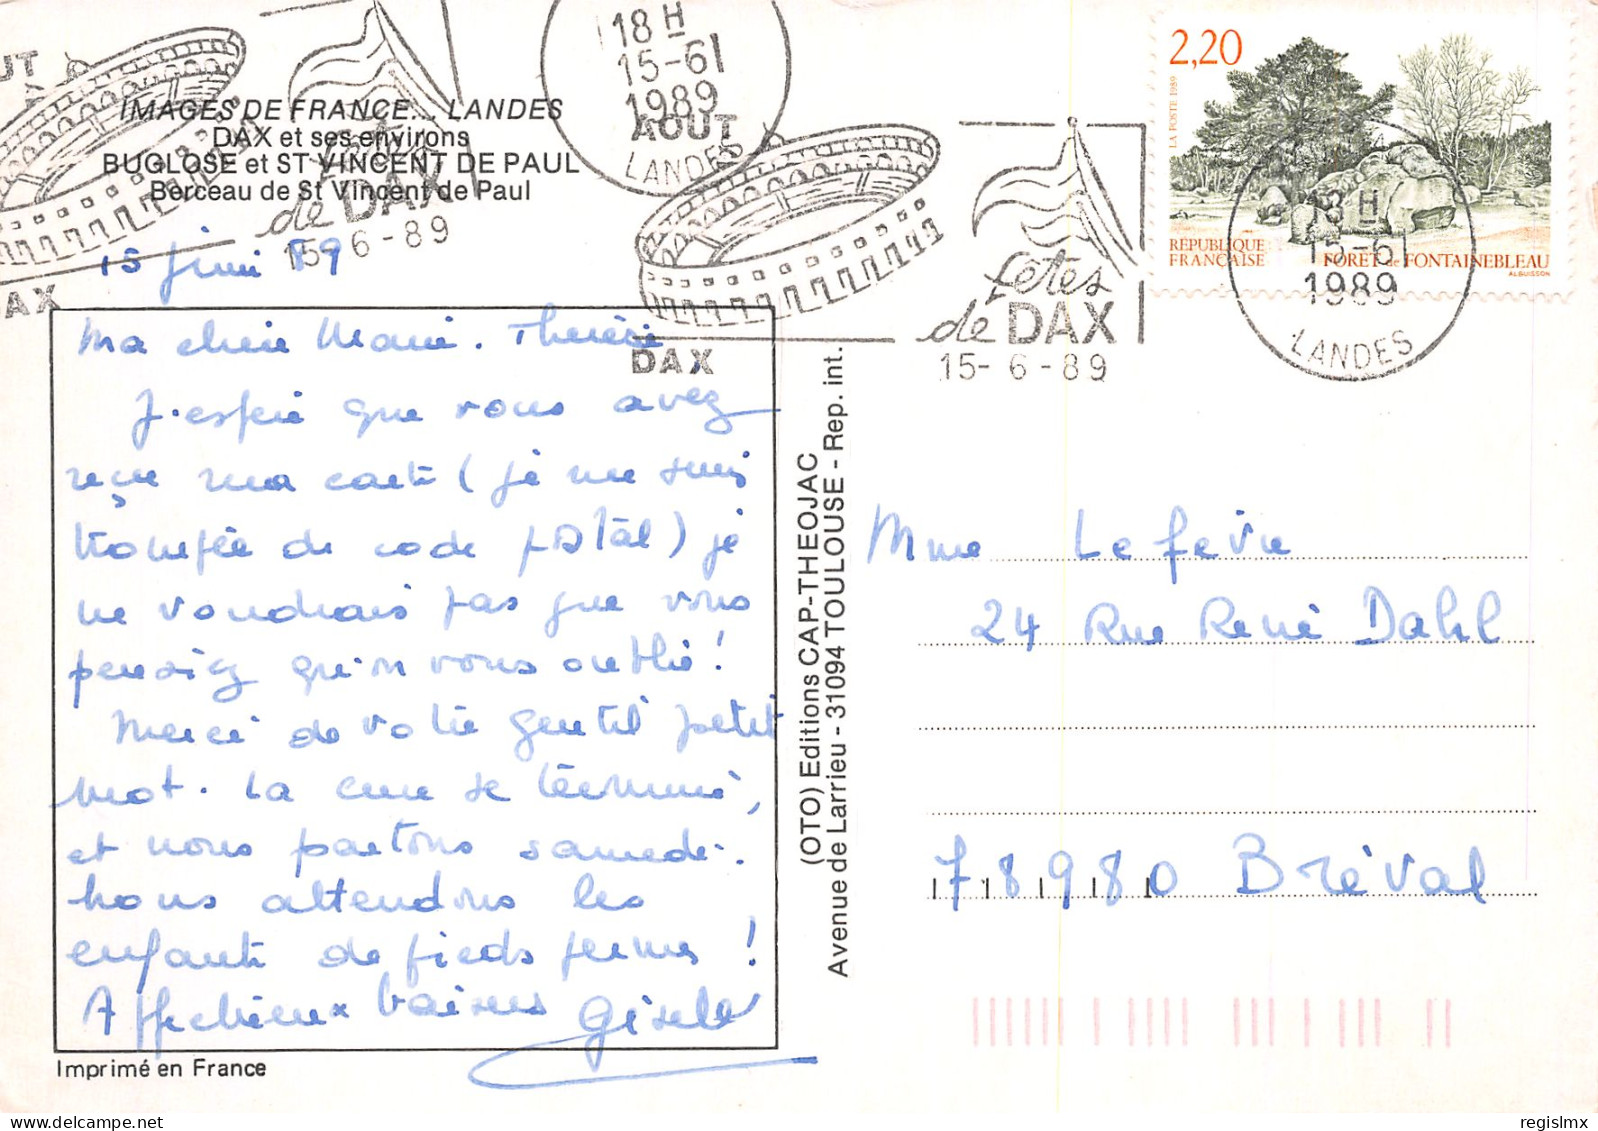 IMAGES DE FRANCE... LANDES
DAX et ses environs
BUGLOSE et ST VINCENT DE PAUL
Berceau de St Vincent de Paul
AOUT
DAX
fêtes
de DAX
15-6-89
18 H
15-6
1989
LANDES
AOUT
DAX
fêtes
de DAX
15-6-89
2,20
LA POSTE 1989
RÉPUBLIQUE
FRANÇAISE
FORÊT de FONTAINEBLEAU
ALBUISSON
18 H
15-6
1989
LANDES
15 juin 89
Ma chère Marie. Thérèse
J'espère que vous avez
reçu ma carte (je me suis
trompée de code postal) je
ne voudrais pas que vous
pensiez qu'on vous oublie!
Merci de votre gentil petit
mot. La cure se termine,
et nous partons samedi.
Nous attendons les
enfants de pieds fermes!
Affectueux baisers Gisèle
Imprimé en France
(OTO) Editions CAP-THEOJAC
Avenue de Larrieu - 31094 TOULOUSE - Rep. int.
Mme Lefèvre
24 Rue René Dahl
78980 Bréval
regislmx